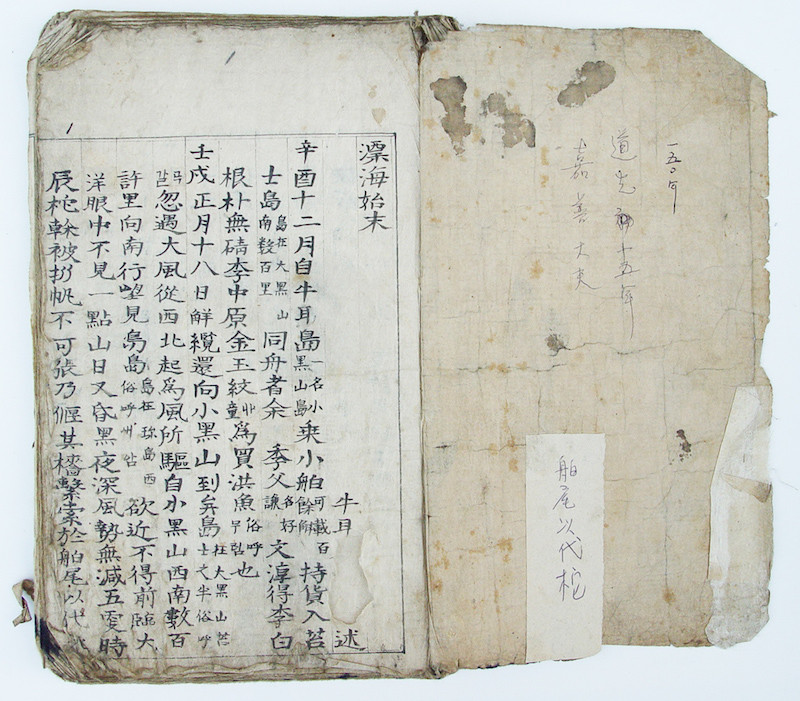 一五〇年
道光 十五年
嘉善大夫
舶尾以代柁
漂海始末
牛耳 述
辛酉十二月自牛耳島一名小黑山島乘小舶可載百餘斛持貨入苔
士島島在大黑山南數百里同舟者余 季父名好謙文淳得李白
根朴無碃李中原金玉紋丱童爲買洪魚俗呼무럼也
壬戌正月十八日解纜還向小黑山到弁島在大黑山苔士之半俗呼
갈忽遇大風從西北起爲風所驅自小黑山西南數百
許里向南行望見鳧島島在珍島西俗呼 압欲近不得前臨大
洋眼中不見一點山日又昏黑夜深風勢無減五更時
辰柁榦被折帆不可張乃偃其檣繫索於舶尾以代
1
1